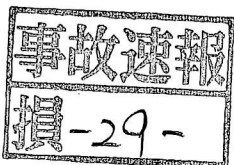 事故速報
損-29-